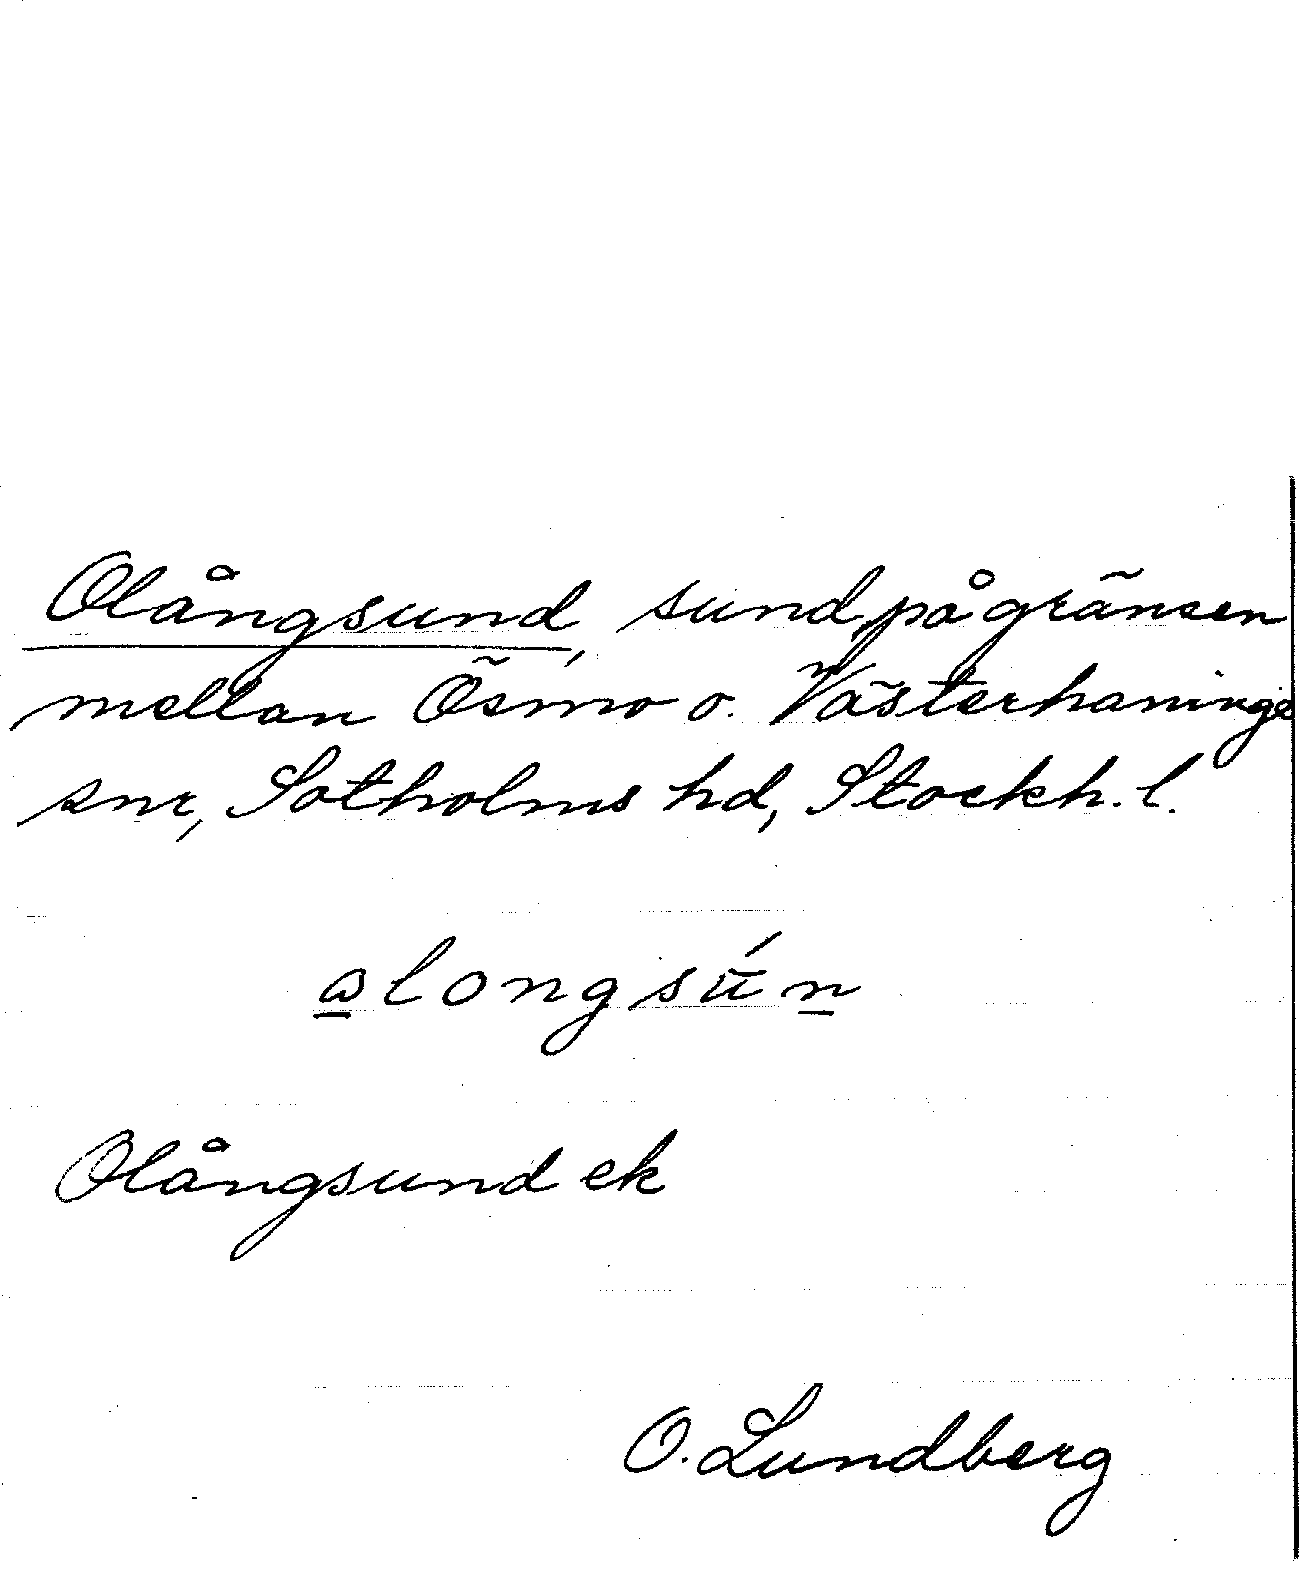 Olångsund, sund, på gränsen
mellan Ösmo o. Västerhaninge
snr, Sotholms hd, Stockh. l.
alongsún
Olångsund ek
O. Lundberg